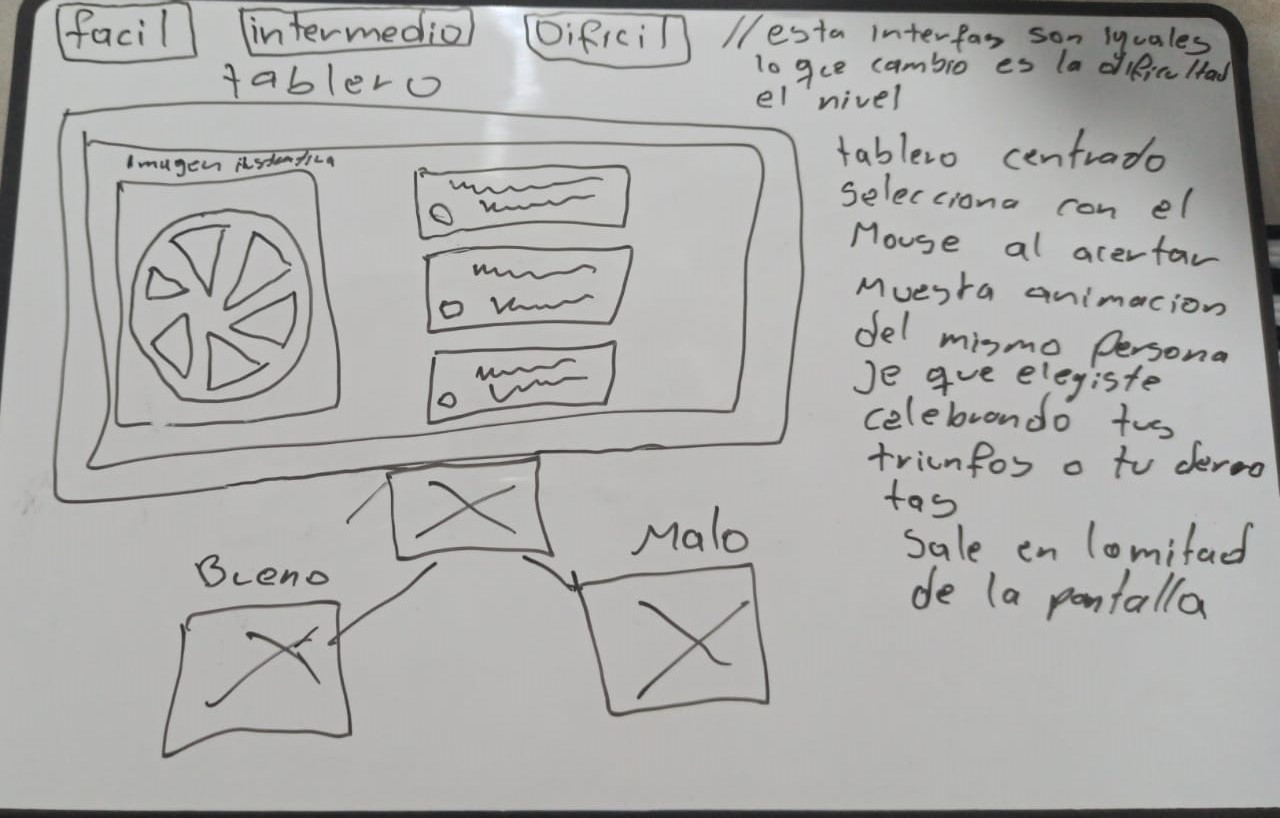 facil
intermedio
Dificil
tablero
//esta interfas son iguales
lo que cambio es la dificultad
el nivel
Imagen
tablero centrado
selecciona con el
Mouse al acertar
muestra animacion
del mismo persona
je que elegiste
celebrando tus
triunfos o tu derro
tas
Sale en lamitad
de la pantalla
Bueno
Malo